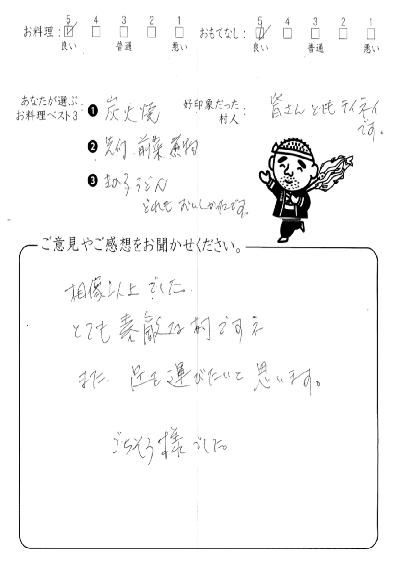 お料理: 5 4 3 2 1 おもてなし: 5 4 3 2 1
良い 普通 悪い 良い 普通 悪い
あなたが選ぶ
お料理ベスト3
❶ 炭火焼
❷ 先付 前菜 煮物
❸ きのこうどん
どれもおいしかったです。
好印象だった
村人
皆さんとてもテイネイ
です。
ご意見やご感想をお聞かせください。
相像以上でした。
とても素敵な村ですネ
また 足を運びたいと思います。
ごちそう様でした。